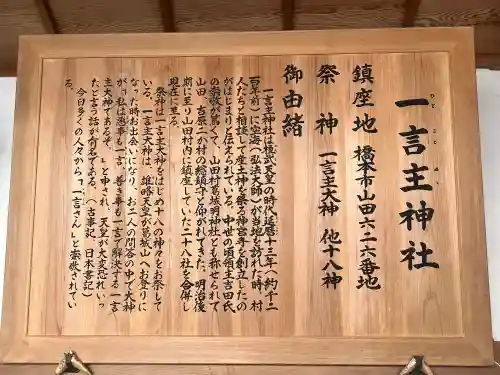 一言主神社
ひとことぬし
鎮座地　橋本市山田六二六番地
祭神　一言主大神　他十八神
御由緒
一言主神社は桓武天皇の時代延暦十三年(約千二
百年前)に空海(弘法大師)が当地を訪れた時、村
人たちと相談して産土神を祭る神宮寺を創立したの
がはじまりと伝えられている。中世の頃領主吉田氏
の崇敬が篤くて、山田村葛城明神社とも称せられて
山田、吉原二か村の総鎮守と仰がれてきた。明治後
期に至り山田村内に鎮座していた二十八社を合併し
現在に至る。
祭神は一言主大神をはじめ十八の神々をお祭して
いる。一言主大神は、雄略天皇が葛城山へお登りに
なった時お出会いになり、お二人の問答の中で大神
が「私は悪事も一言、善き事も一言で解決する一言
主大神であるぞ。」と申され、天皇が大変恐れいっ
たと言う話が有名である。(古事記　日本書記)
今日多くの人々から「一言さん」と崇敬されてい
る。